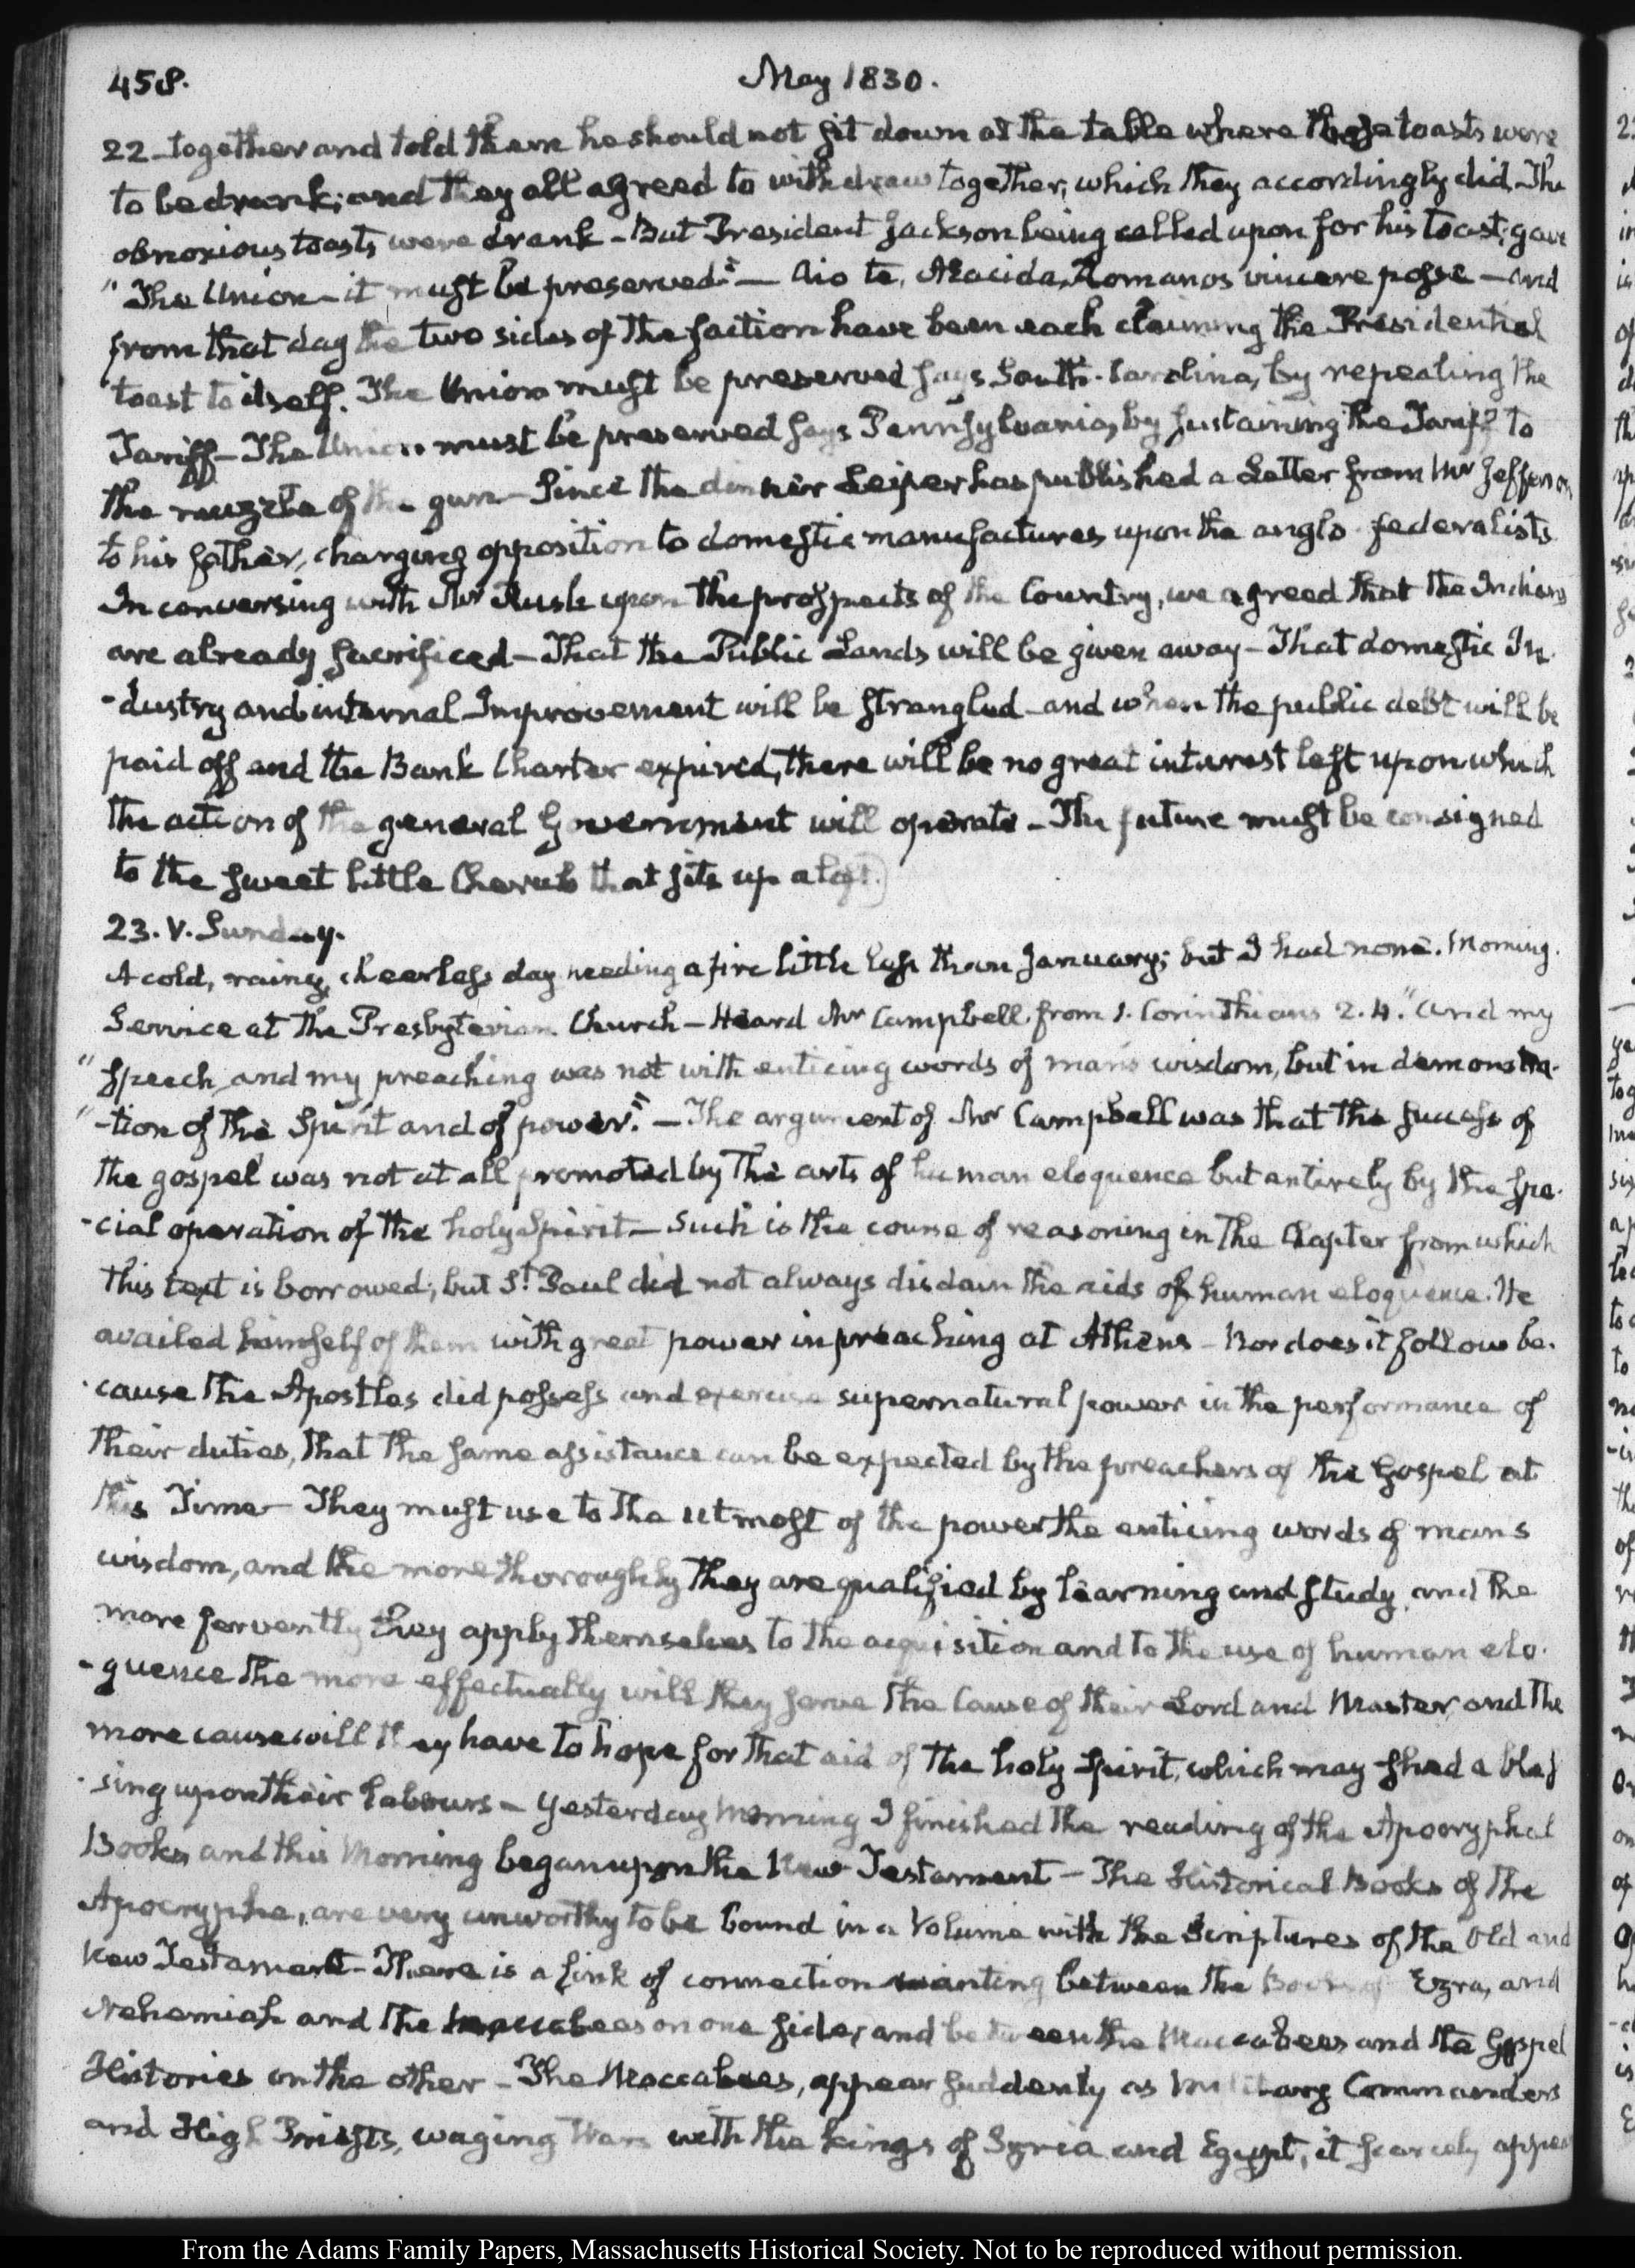 458.
May 1830.
22 together and told them he should not sit down at the table where those toasts were
to be drank; and they all agreed to withdraw together, which they accordingly did. The
obnoxious toasts were drank - But President Jackson being called upon for his toast; gave
"The Union - it must be preserved" - Aio te, Aeacida, Romanos vincere posse - and
from that day the two sides of the faction have been each claiming the Presidential
toast to itself. The Union must be preserved says South-Carolina, by repealing the
Tariff - The Union must be preserved says Pennsylvania, by sustaining the Tariff to
the muzzle of the gun - Since the dinner Leiper has published a Letter from Mr Jefferson
to his father, charging opposition to domestic manufactures upon the anglo-federalists
In conversing with Mr Rush upon the prospects of the Country, we agreed that the Indians
are already sacrificed - That the Public Lands will be given away - That domestic In-
-dustry and internal Improvement will be strangled - and when the public debt will be
paid off and the Bank Charter expired, there will be no great interest left upon which
the action of the general Government will operate - The future must be consigned
to the sweet little Cherub that sits up aloft.
23. V. Sunday.
A cold, rainy, cheerless day needing a fire little less than January; but I had none. Morning
Service at the Presbyterian Church - Heard Mr Campbell from 1. Corinthians 2. 4. "And my
"speech and my preaching was not with enticing words of mans wisdom, but in demonstra-
"-tion of the Spirit and of power." - The argument of Mr Campbell was that the success of
the gospel was not at all promoted by the arts of human eloquence but entirely by the spe-
-cial operation of the holy Spirit - Such is the course of reasoning in the Chapter from which
this text is borrowed; but St. Paul did not always disdain the aids of human eloquence. He
availed himself of them with great power in preaching at Athens - Nor does it follow be-
-cause the Apostles did possess and exercise supernatural power in the performance of
their duties, that the same assistance can be expected by the preachers of the Gospel at
this Time - They must use to the utmost of the power the enticing words of mans
wisdom, and the more thoroughly they are qualified by learning and study, and the
more fervently they apply themselves to the acquisition and to the use of human elo-
-quence the more effectually will they serve the Cause of their Lord and Master, and the
more cause will they have to hope for that aid of the holy Spirit, which may shed a bles
-sing upon their labours - Yesterday Morning I finished the reading of the Apocryphal
Books and this Morning began upon the New Testament - The Historical Books of the
Apocrypha, are very unworthy to be bound in a Volume with the Scriptures of the Old and
New Testament - There is a link of connection wanting between the Books of Ezra, and
Nehemiah and the Maccabees on one side, and between the Maccabees and the Gospel
Histories on the other - The Maccabees, appear suddenly as Military Commanders
and High Priests, waging Wars with the kings of Syria and Egypt, it scarcely appea
From the Adams Family Papers, Massachusetts Historical Society. Not to be reproduced without permission.